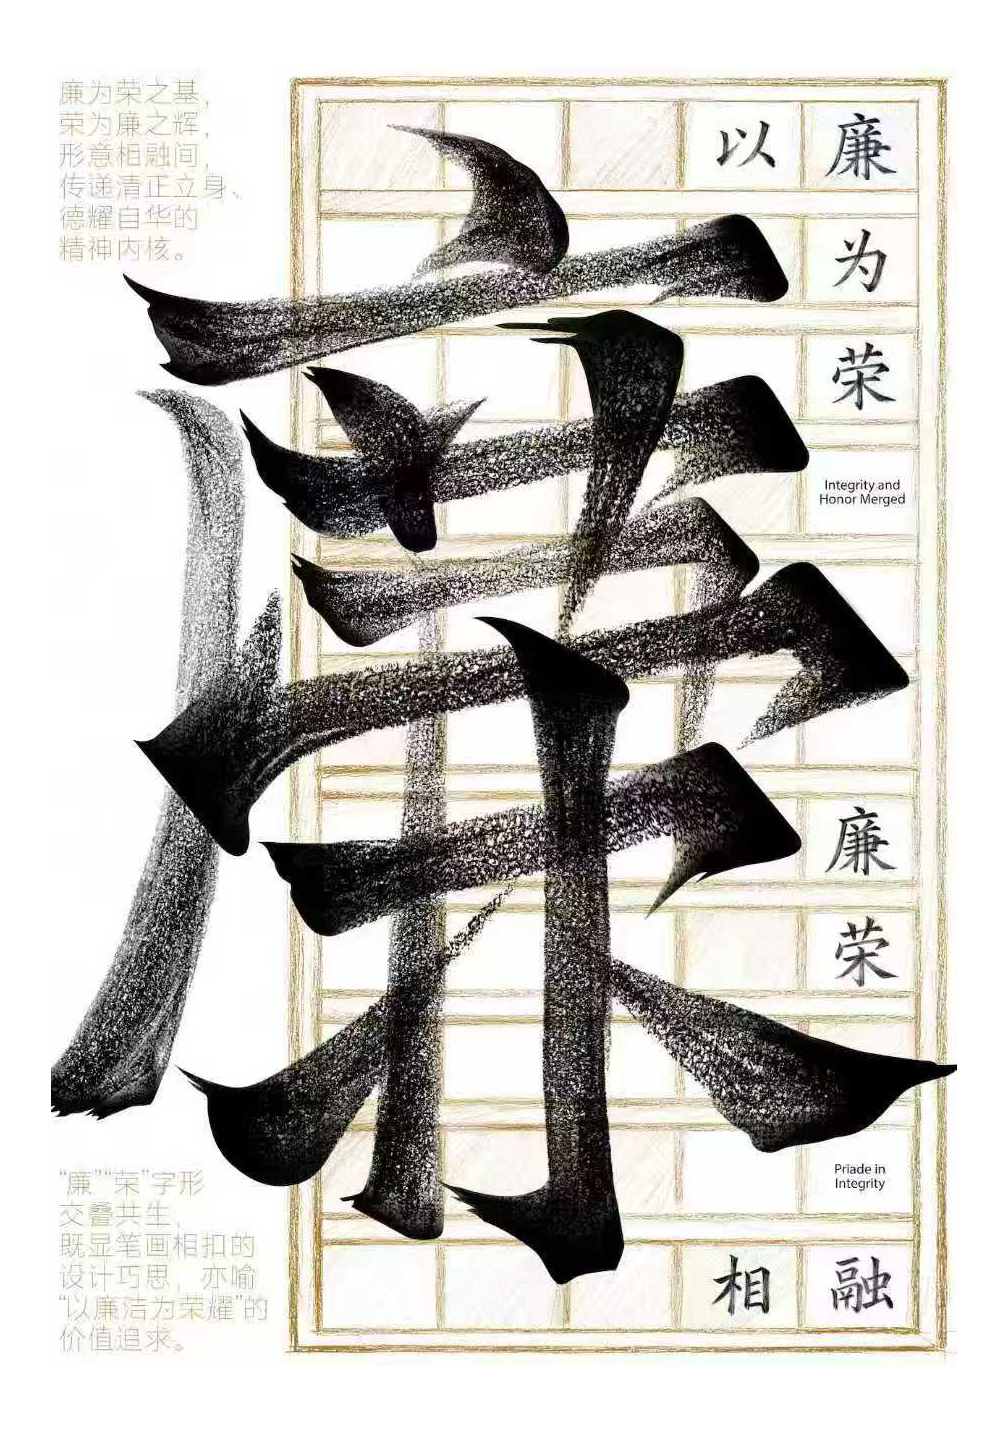 廉为荣之基，
荣为廉之辉，
形意相融间，
传递清正立身、
德耀自华的
精神内核。
以
廉
为
荣
Integrity and
Honor Merged
廉
荣
Priade in
Integrity
相
融
“廉”“荣”字形
交叠共生，
既显笔画相扣的
设计巧思，亦喻
“以廉洁为荣耀”的
价值追求。